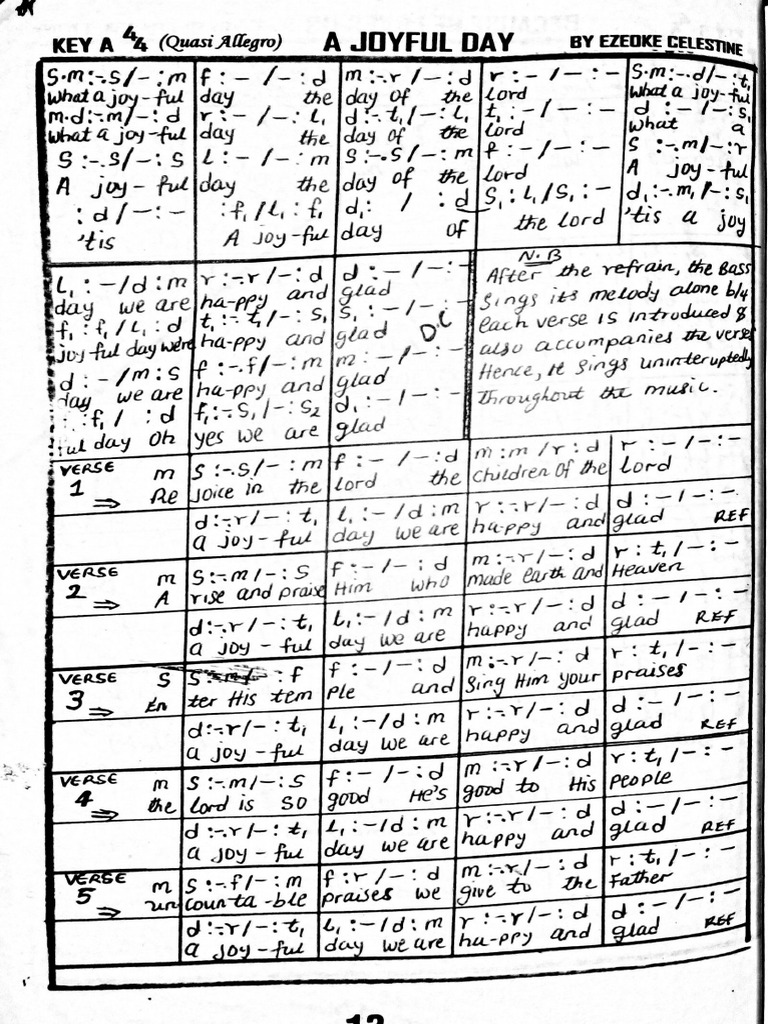 KEY A 4/4 (Quasi Allegro) A JOYFUL DAY BY EZEOKE CELESTINE
S.m:-.S/-:m | f:-/-:d | m:-.r/-:d | r:-/-:- | S.m:-.d/-:t₁
What a joy-ful | day the | day of the | Lord | What a joy-ful
m.d:-.m/-:d | r:-/-:L₁ | d:-.t₁/-:L₁ | t₁:-/-:- | d:-/-:S₁
What a joy-ful | day the | day of the | Lord | What a
S:-.S/-:S | L:-/-:m | S:-.S/-:m | f:-/-:- | S:-.m/-:r
A joy-ful | day the | day of the | Lord | A joy-ful
:d/-:- | :f₁/L₁:f₁ | d₁: / :d | S₁:L₁/S₁:- | d₁:-.m₁/-:S₁
'tis | A joy-ful | day of | the lord | 'tis a joy
L₁:-/d:m | r:-.r/-:d | d:-/-:-
day we are | ha-ppy and | glad
f₁:f₁/L₁:d | t₁:-.t₁/-:S₁ | S₁:-/-:-
joyful day were | ha-ppy and | glad D.C
d:-/m:S | f:-.f/-:m | m:-/-:-
day we are | ha-ppy and | glad
:f₁/ :d | f₁:-S₁/-:S₂ | d₁:-/-:-
ful day Oh | yes we are | glad
N.B
After the refrain, the Bass
Sings its melody alone b/4
each verse is introduced &
also accompanies the verses
Hence, it sings uninteruptedly
throughout the music.
VERSE m | S:-.S/-:m | f:-/-:d | m:m/r:d | r:-/-:-
1 ⇒ Re | joice in the | lord the | children of the | Lord
d:-.r/-:t₁ | L₁:-/d:m | r:-.r/-:d | d:-/-:-
a joy-ful | day we are | happy and | glad REF
VERSE m | S:-.m/-:S | f:-/-:d | m:-.r/-:d | r:t₁/-:-
2 ⇒ A | rise and praise | Him who | made earth and | Heaven
d:-.r/-:t₁ | L₁:-/d:m | r:-.r/-:d | d:-/-:-
a joy-ful | day we are | happy and | glad REF
VERSE S | S:-.m/-:f | f:-/-:d | m:-.r/-:d | r:t₁/-:-
3 ⇒ En | ter His tem | ple and | Sing Him your | praises
d:-.r/-:t₁ | L₁:-/d:m | r:-.r/-:d | d:-/-:-
a joy-ful | day we are | happy and | glad REF
VERSE m | S:-.m/-:S | f:-/-:d | m:-.r/-:d | r:t₁/-:-
4 ⇒ the | Lord is so | good He's | good to His | People
d:-.r/-:t₁ | L₁:-/d:m | r:-.r/-:d | d:-/-:-
a joy-ful | day we are | happy and | glad REF
VERSE m | S:-.f/-:m | f:r/-:d | m:-.r/-:d | r:t₁/-:-
5 ⇒ un | counta-ble | praises we | give to the | Father
d:-.r/-:t₁ | L₁:-/d:m | r:-.r/-:d | d:-/-:-
a joy-ful | day we are | ha-ppy and | glad REF